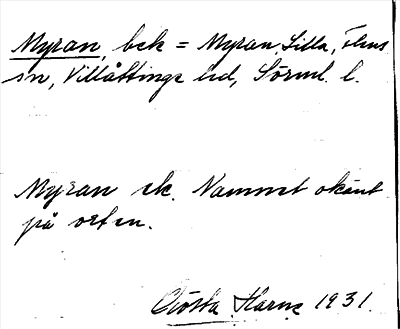 Myran, bek = Myran, Lilla, Flens
sn, Villåttinge hd, Sörml. l.
Myran ek. Namnet okänt
på orten.
Gösta 1931.